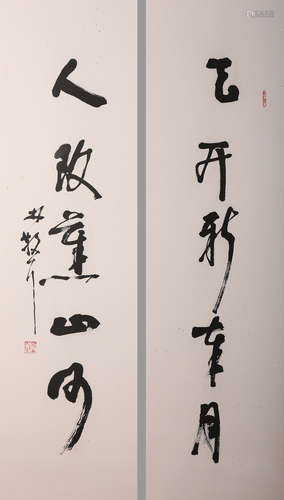 天开新岁月
人改旧山河
林散之